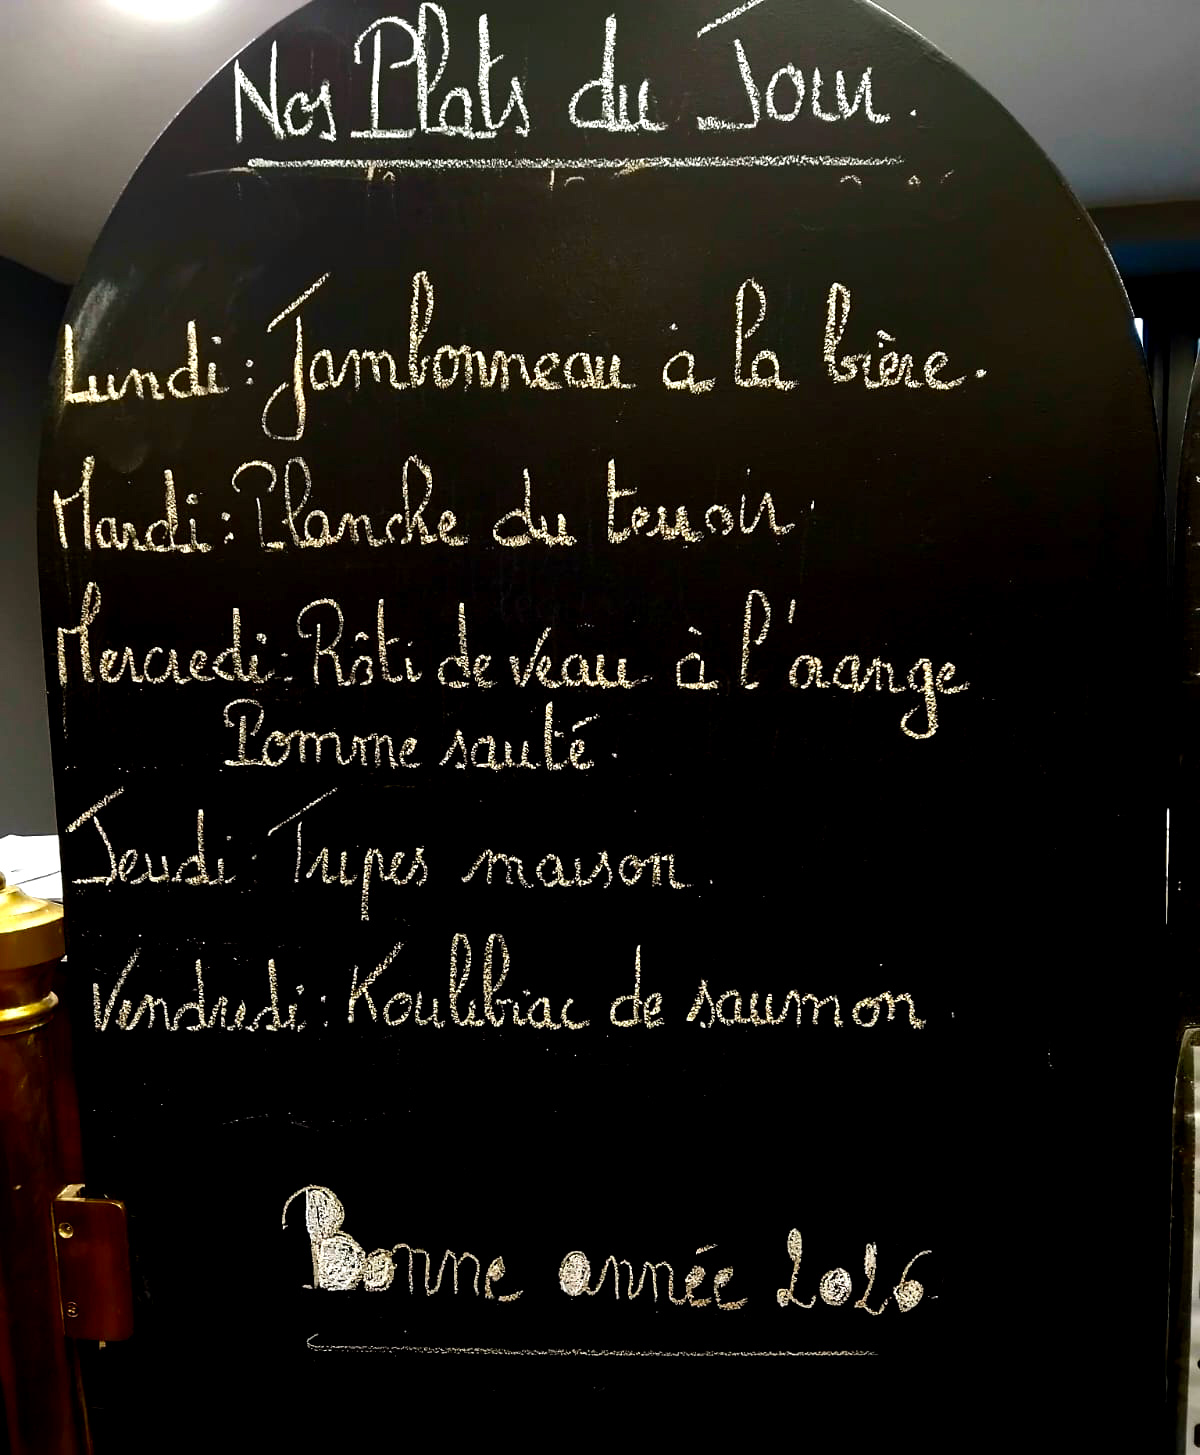 Nos Plats du Jour.
Lundi : Jambonneau à la bière.
Mardi : Planche du terroir
Mercredi : Rôti de veau à l'orange
Pomme sauté.
Jeudi : Tripes maison.
Vendredi : Koulibiac de saumon.
Bonne année 2026